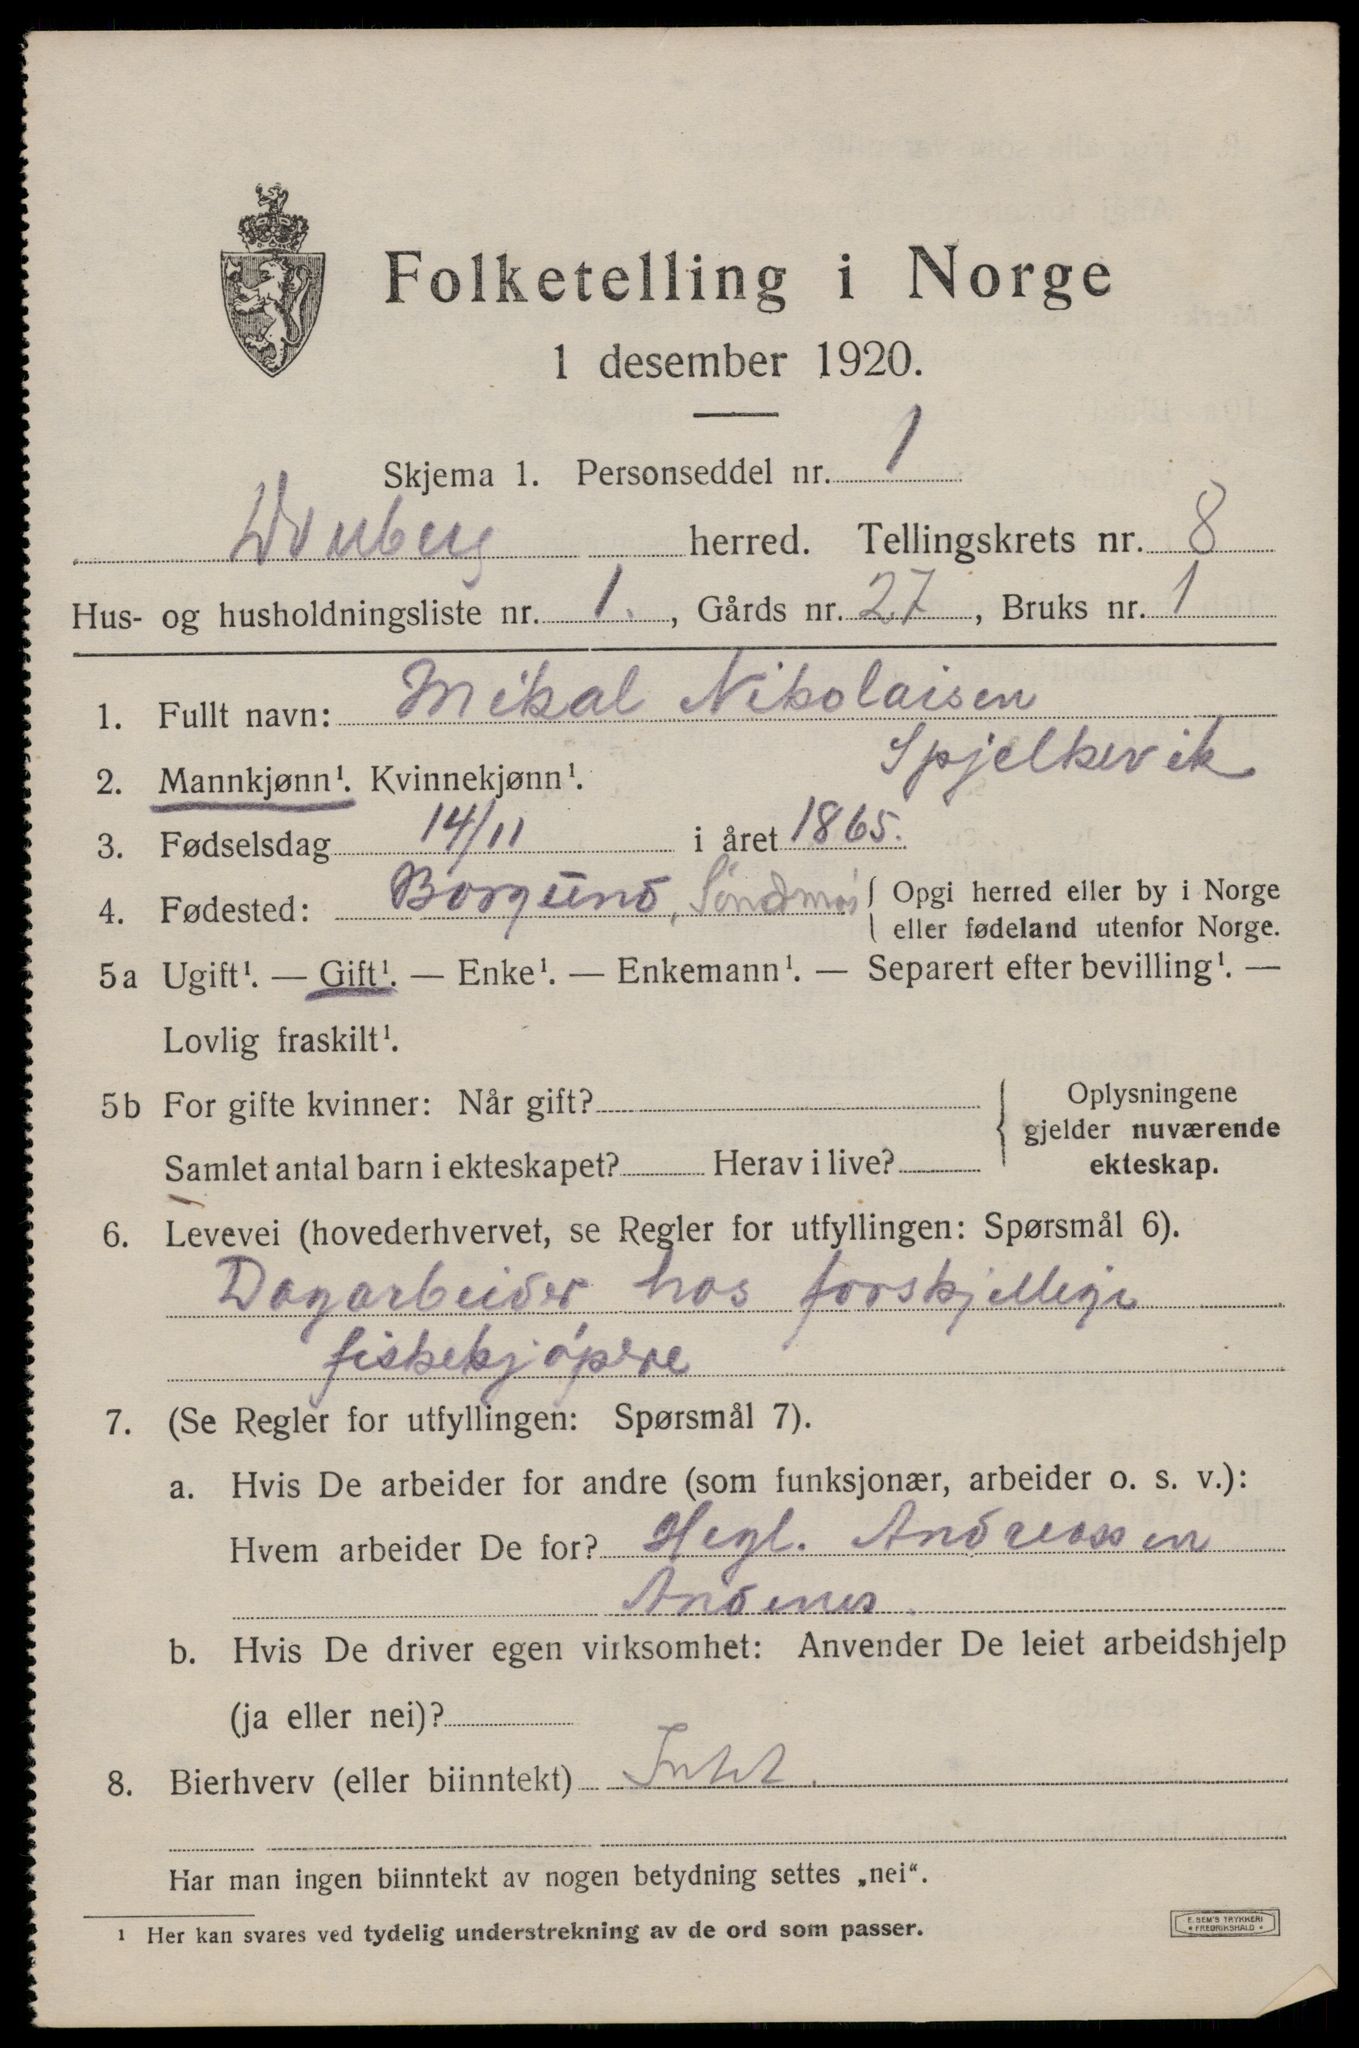 Folketelling i Norge
1 desember 1920.
Skjema 1. Personseddel nr. 1
Dverberg herred. Tellingskrets nr. 8
Hus- og husholdningsliste nr. 1., Gårds nr. 27, Bruks nr. 1
1. Fullt navn: Mikal Nikolaisen
Spjelkevik
2. Mannkjønn¹. Kvinnekjønn¹.
3. Fødselsdag 14/11 i året 1865.
4. Fødested: Borgund, Söndmör { Opgi herred eller by i Norge
eller fødeland utenfor Norge.
5a Ugift¹. — Gift¹. — Enke¹. — Enkemann¹. — Separert efter bevilling¹. —
Lovlig fraskilt¹.
5b For gifte kvinner: Når gift?
Samlet antal barn i ekteskapet? Herav i live?
{ Oplysningene
gjelder nuværende
ekteskap.
6. Levevei (hovederhvervet, se Regler for utfyllingen: Spørsmål 6).
Dagarbeider hos forskjellige
fiskekjøpere
7. (Se Regler for utfyllingen: Spørsmål 7).
a. Hvis De arbeider for andre (som funksjonær, arbeider o. s. v.):
Hvem arbeider De for? Hegl. Andreassen
Andenes.
b. Hvis De driver egen virksomhet: Anvender De leiet arbeidshjelp
(ja eller nei)?
8. Bierhverv (eller biinntekt)
Har man ingen biinntekt av nogen betydning settes „nei“.
¹ Her kan svares ved tydelig understrekning av de ord som passer.
E. SEM'S TRYKKERI
* FREDRIKSHALD *